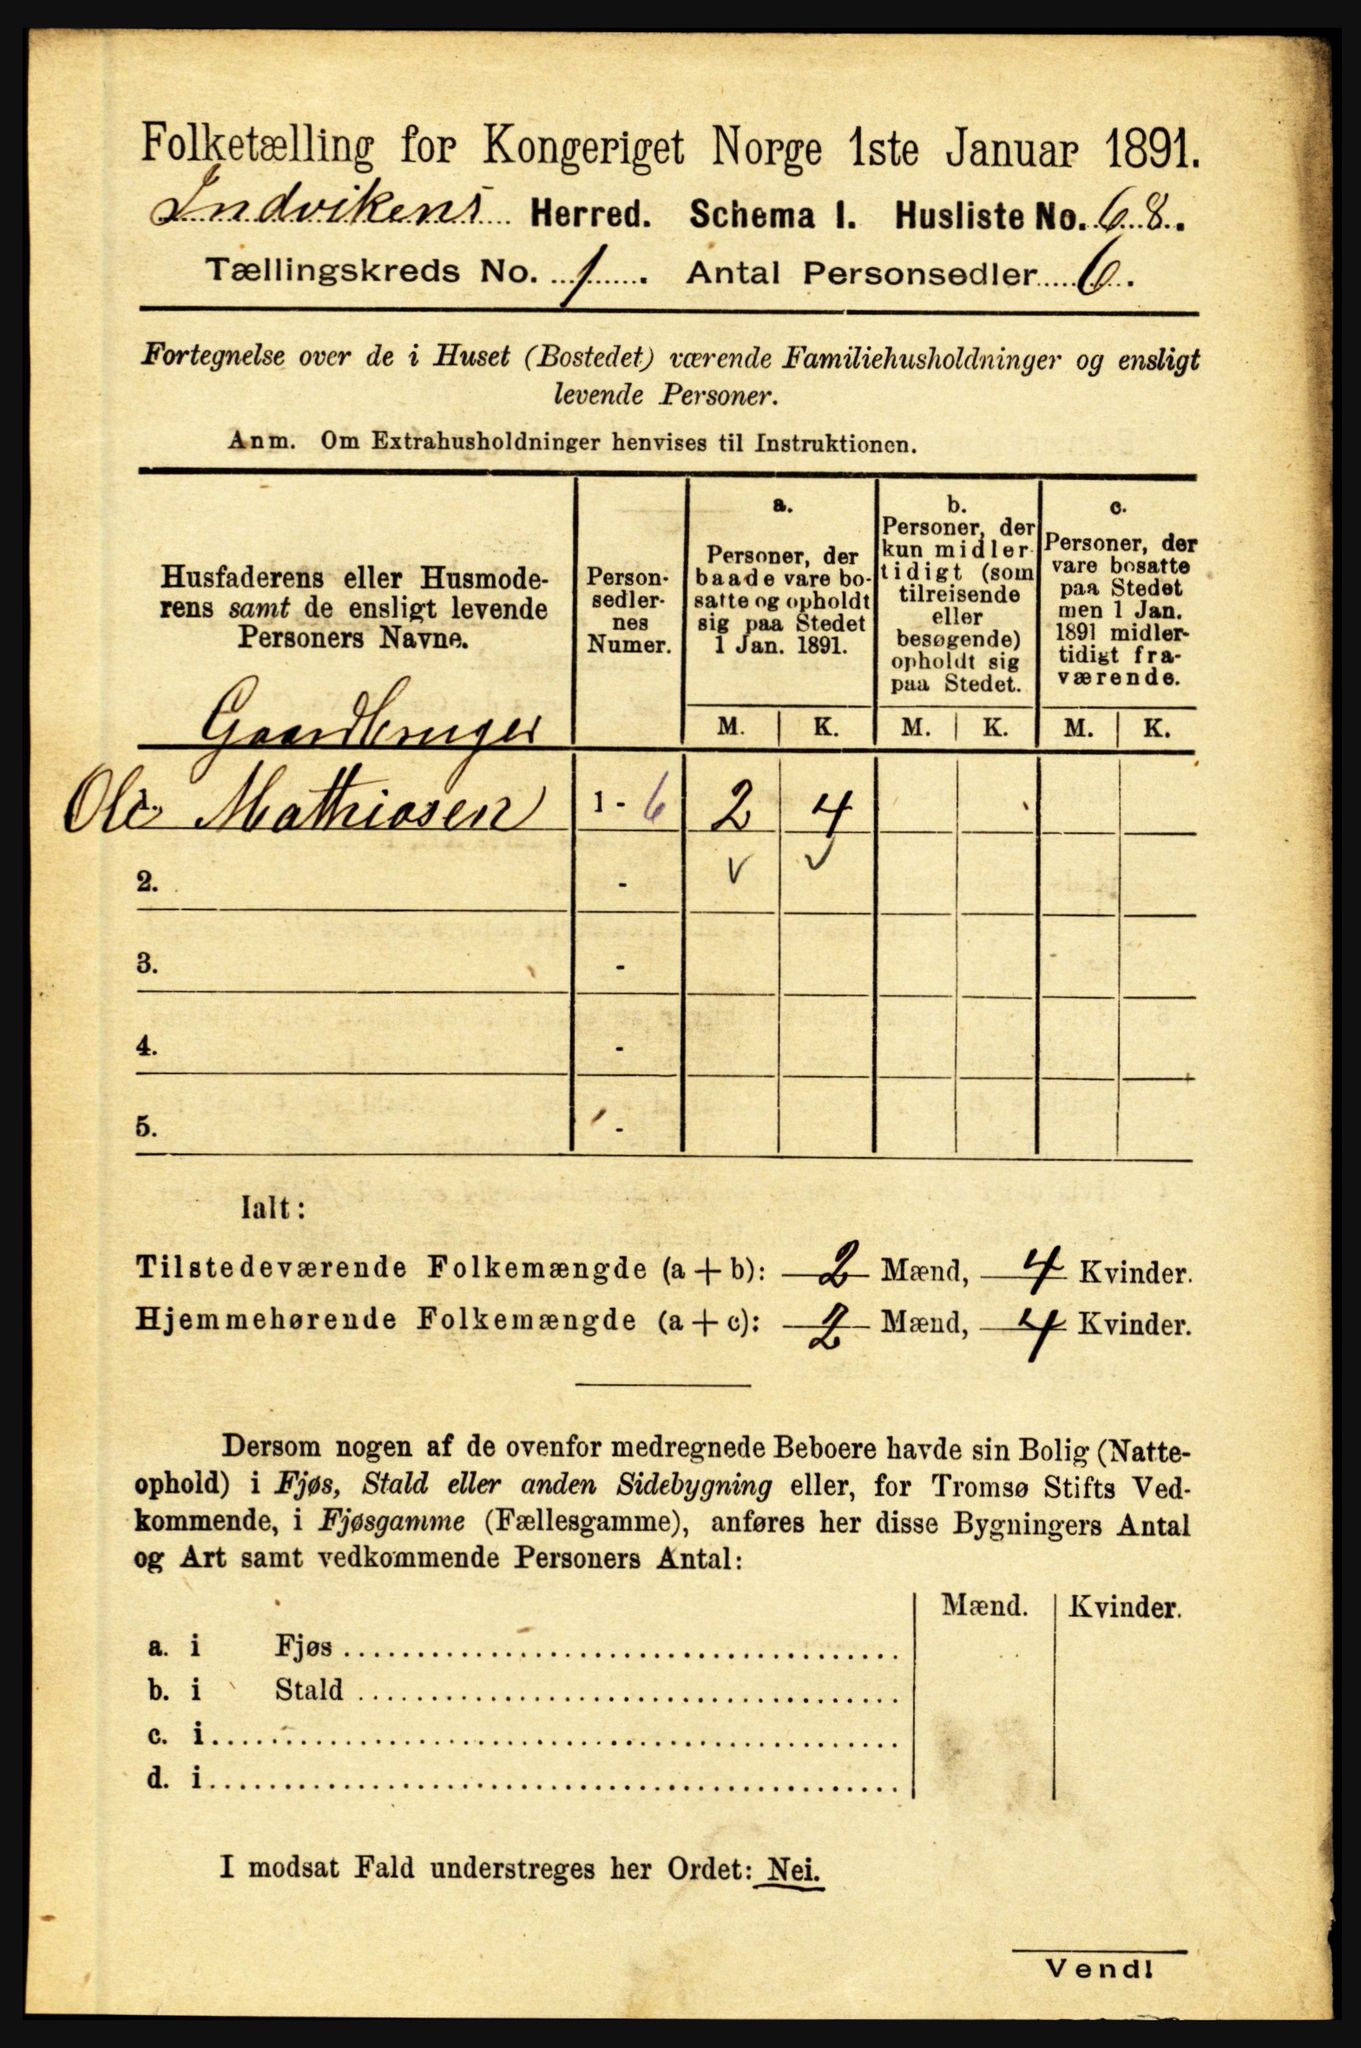 Folketælling for Kongeriget Norge 1ste Januar 1891.
Indvikens Herred. Schema I. Husliste No. 68.
Tællingskreds No. 1. Antal Personsedler 6.
Fortegnelse over de i Huset (Bostedet) værende Familiehusholdninger og ensligt
levende Personer.
Anm. Om Extrahusholdninger henvises til Instruktionen.
Husfaderens eller Husmode-
rens samt de ensligt levende
Personers Navne.
Person-
sedler-
nes
Numer.
a.
Personer, der
baade vare bo-
satte og opholdt
sig paa Stedet
1 Jan. 1891.
b.
Personer, der
kun midler-
tidigt (som
tilreisende
eller
besøgende)
opholdt sig
paa Stedet.
c.
Personer, der
vare bosatte
paa Stedet
men 1 Jan.
1891 midler-
tidigt fra-
værende.
M. K. M. K. M. K.
Gaardbruger
Ole Mathiasen 1 - 6 2 4
2. - v v
3. -
4. -
5. -
Ialt:
Tilstedeværende Folkemængde (a + b): 2 Mænd, 4 Kvinder.
Hjemmehørende Folkemængde (a + c): 2 Mænd, 4 Kvinder.
Dersom nogen af de ovenfor medregnede Beboere havde sin Bolig (Natte-
ophold) i Fjøs, Stald eller anden Sidebygning eller, for Tromsø Stifts Ved-
kommende, i Fjøsgamme (Fællesgamme), anføres her disse Bygningers Antal
og Art samt vedkommende Personers Antal:
Mænd. Kvinder.
a. i Fjøs
b. i Stald
c. i
d. i
I modsat Fald understreges her Ordet: Nei.
Vend!